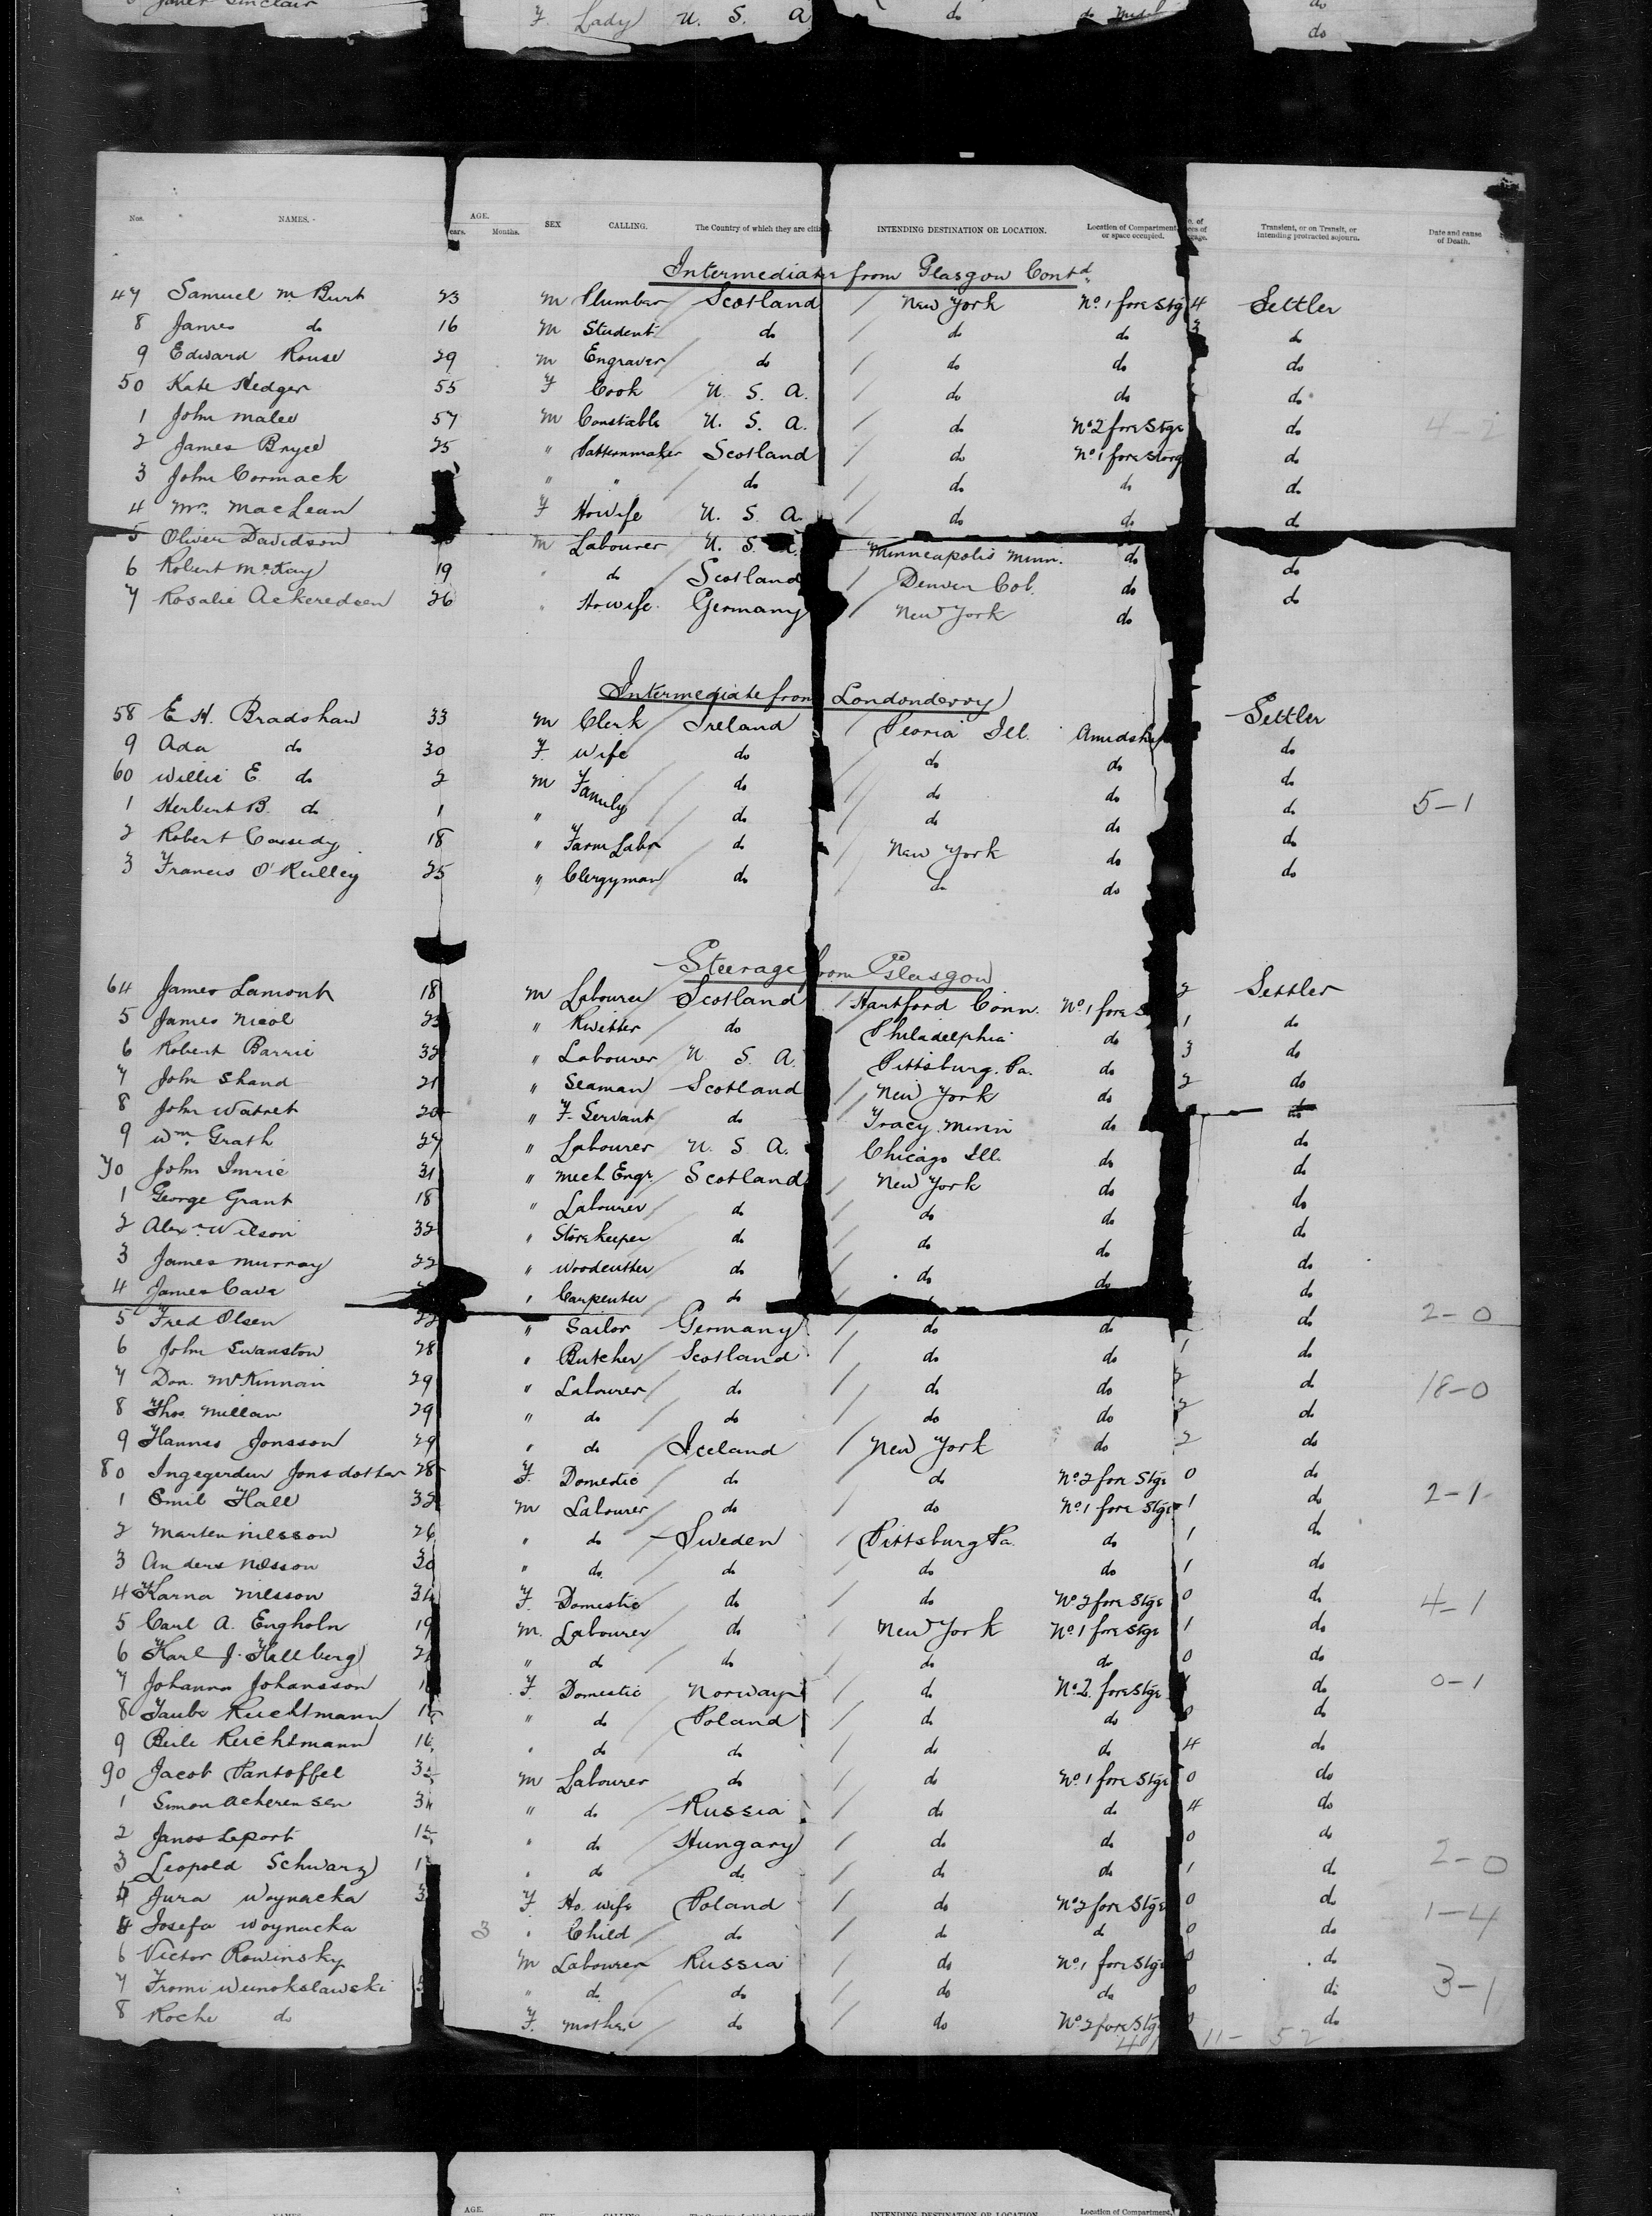 Janet Sinclair F. Lady U. S. A do do do
do
Nos. NAMES. AGE. ears. Months. SEX CALLING. The Country of which they are citi INTENDING DESTINATION OR LOCATION. Location of Compartment, or space occupied. Transient, or on Transit, or intending protracted sojourn. Date and cause of Death.
Intermediate from Glasgow Contd
47 Samuel M. Burt 23 M Plumber Scotland New York No 1 fore Stg 4 Settler
8 James do 16 M Student do do do 3 do
9 Edward Rouse 29 M Engraver do do do do
50 Kate Hedger 55 F Cook U. S. A. do do do
1 John Malee 57 M Constable U. S. A. do No 2 fore Stge do 4-2
2 James Bryce 25 " Patternmaker Scotland do No 1 fore Storg do
3 John Cormack " " do do do do
4 Mrs. MacLean F Howife U. S. A do do do
5 Oliver Davidson M Labourer U. S. Minneapolis Minn. do do
6 Robert McKay 19 " do Scotland Denver Col. do do
7 Rosalie Ackeredsen 26 " Howife Germany New York do
Intermediate from Londonderry
58 E. H. Bradshaw 33 M Clerk Ireland Peoria Ill. Amidship Settler
9 Ada do 30 F. Wife do do do do
60 Willie E. do 2 M Family do do do do
1 Herbert B. do 1 " do do do do 5-1
2 Robert Cassidy 18 " Farm Labr do New York do do
3 Francis O'Reilley 25 " Clergyman do do do do
Steerage from Glasgow
64 James Lamont 18 M Labourer Scotland Hartford Conn. No 1 fore S 2 Settler
5 James Nicol 25 " Rivetter do Philadelphia do 1 do
6 Robert Barrie 32 " Labourer U. S. A. Pittsburg. Pa. do 3 do
7 John Shand 21 " Seaman Scotland New York do 2 do
8 John Watret 20 " F. Servant do Tracy Minn do do
9 Wm. Grath 27 " Labourer U. S. A. Chicago Ill. do do
70 John Imrie 31 " Mech. Engr. Scotland New York do do
1 George Grant 18 " Labourer do do do do
2 Alexr Wilson 32 " Storekeeper do do do do
3 James Murray 22 " Woodcutter do do do do
4 James Cava " Carpenter do do
5 Fred Olsen 22 " Sailor Germany do do do 2-0
6 John Swanston 28 " Butcher Scotland do do 1 do
7 Don. McKinnan 29 " Labourer do do do 2 do 18-0
8 Thos. Millan 29 " do do do do 2 do
9 Hannes Jonsson 29 " do Iceland New York do 2 do
80 Ingegerdur Jonsdottar 28 F. Domestic do do No 2 fore Stge 0 do
1 Emil Hall 32 M Labourer do do No 1 fore Stge 1 do 2-1
2 Marten Nilsson 26 " do Sweden Pittsburg Pa. do 1 do
3 Anders Nilsson 30 " do do do do 1 do
4 Karna Nilsson 31 F. Domestic do do No 2 fore Stge 0 do 4-1
5 Carl A. Engholn 19 M. Labourer do New York No 1 fore Stge 1 do
6 Karl J. Hallberg 21 " do do do do 0 do
7 Johanna Johansson F. Domestic Norway do No 2 fore Stge do 0-1
8 Taube Reichtmann " do Poland do do 0 do
9 Beile Reichtmann 16 " do do do do 4 do
90 Jacob Pantoffel M Labourer do do No 1 fore Stge 0 do
1 Simon Acherensen " do Russia do do 4 do
2 Janos Leport " do Hungary do do 0 do
3 Leopold Schwarz " do do do do 1 do 2-0
4 Jura Woynacka F. Ho. wife Poland do No 2 fore Stge 0 do 1-4
5 Josefa Woynacka 3 " Child do do do 0 do
6 Victor Rowinsky M Labourer Russia do No 1 fore Stge 0 do
7 Fromi Wunokslawski " do do do do 0 do 3-1
8 Roche do F. Mother do do No 2 fore Stge 0 do
11- 52
AGE.
NAMES SEX CALLING INTENDING DESTINATION OR LOCATION Location of Compartment,